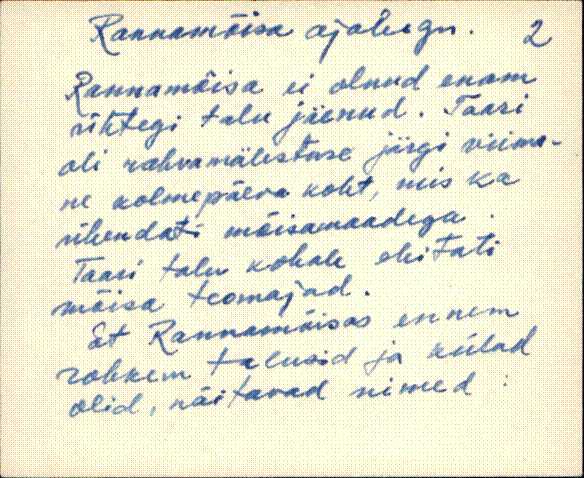 Rannamõisa ajalugu. 2
Rannamõisa ei olnud enam
ühtegi talu jäenud. Taari
oli rahvamälestuse järgi viima-
ne kolmepäeva koht, mis ka
ühendati mõisamaadega.
Taari talu kohale ehitati
mõisa teomajad.
Et Rannamõisas ennem
rohkem talusid ja külad
olid, näitavad nimed :